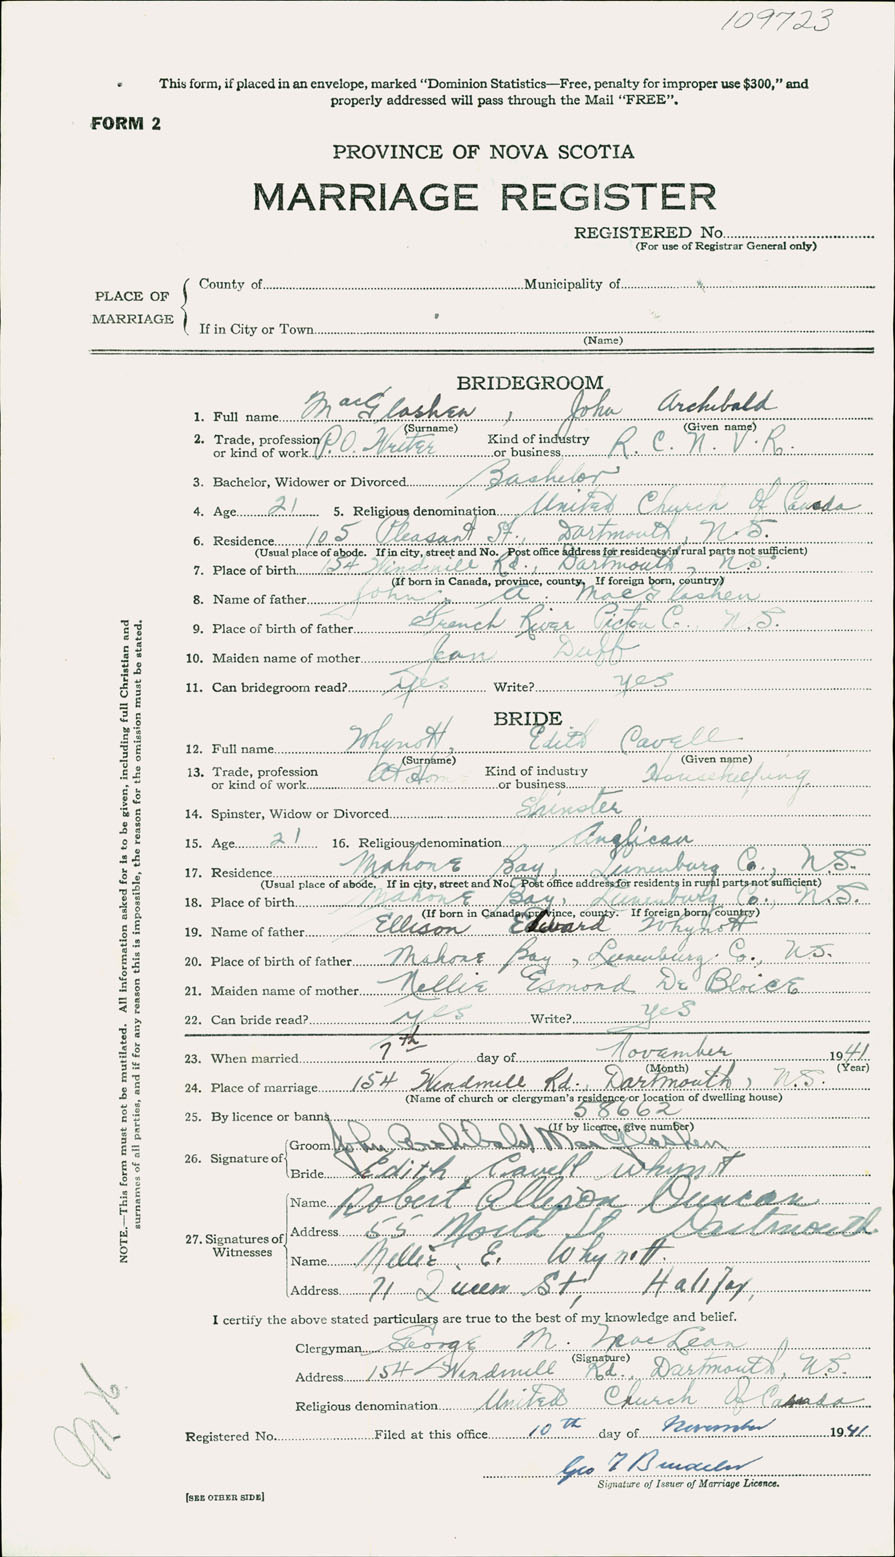 109723
This form, if placed in an envelope, marked "Dominion Statistics—Free, penalty for improper use $300," and
properly addressed will pass through the Mail "FREE".
FORM 2
PROVINCE OF NOVA SCOTIA
MARRIAGE REGISTER
REGISTERED No.
(For use of Registrar General only)
PLACE OF MARRIAGE
County of Municipality of
If in City or Town
(Name)
BRIDEGROOM
1. Full name MacGlashen, John Archibald
(Surname) (Given name)
2. Trade, profession or kind of work P.O. Writer Kind of industry or business R. C. N. V. R.
3. Bachelor, Widower or Divorced Bachelor
4. Age 21 5. Religious denomination United Church Of Canada
6. Residence 105 Pleasant St., Dartmouth, N.S.
(Usual place of abode. If in city, street and No. Post office address for residents in rural parts not sufficient)
7. Place of birth 154 Windmill Rd., Dartmouth, N.S.
(If born in Canada, province, county. If foreign born, country)
8. Name of father John A. MacGlashen
9. Place of birth of father French River Pictou C., N.S.
10. Maiden name of mother Jean Duff
11. Can bridegroom read? yes Write? yes
BRIDE
12. Full name Whynott, Edith Cavell
(Surname) (Given name)
13. Trade, profession or kind of work At Home Kind of industry or business Housekeeping
14. Spinster, Widow or Divorced Spinster
15. Age 21 16. Religious denomination Anglican
17. Residence Mahone Bay, Lunenburg Co., N.S.
(Usual place of abode. If in city, street and No. Post office address for residents in rural parts not sufficient)
18. Place of birth Mahone Bay, Lunenburg Co., N.S.
(If born in Canada, province, county. If foreign born, country)
19. Name of father Ellison Edward Whynott
20. Place of birth of father Mahone Bay, Lunenburg Co., N.S.
21. Maiden name of mother Nellie Esmond De Bloice
22. Can bride read? yes Write? yes
23. When married 7th day of November 1941
(Month) (Year)
24. Place of marriage 154 Windmill Rd., Dartmouth, N.S.
(Name of church or clergyman's residence or location of dwelling house)
25. By licence or banns 58662
(If by licence, give number)
26. Signature of Groom John Archibald MacGlashen
Bride Edith Cavell Whynott
27. Signatures of Witnesses Name Robert Allison Duncan
Address 55 North St Dartmouth
Name Nellie E. Whynott.
Address 71 Queen St, Halifax,
I certify the above stated particulars are true to the best of my knowledge and belief.
Clergyman George M. MacLean
(Signature)
Address 154 Windmill Rd., Dartmouth, N.S.
Religious denomination United Church Of Canada
Registered No. Filed at this office 10th day of November 1941
Geo
Signature of Issuer of Marriage Licence.
[SEE OTHER SIDE]
NOTE.—This form must not be mutilated. All Information asked for is to be given, including full Christian and
surnames of all parties, and if for any reason this is impossible, the reason for the omission must be stated.